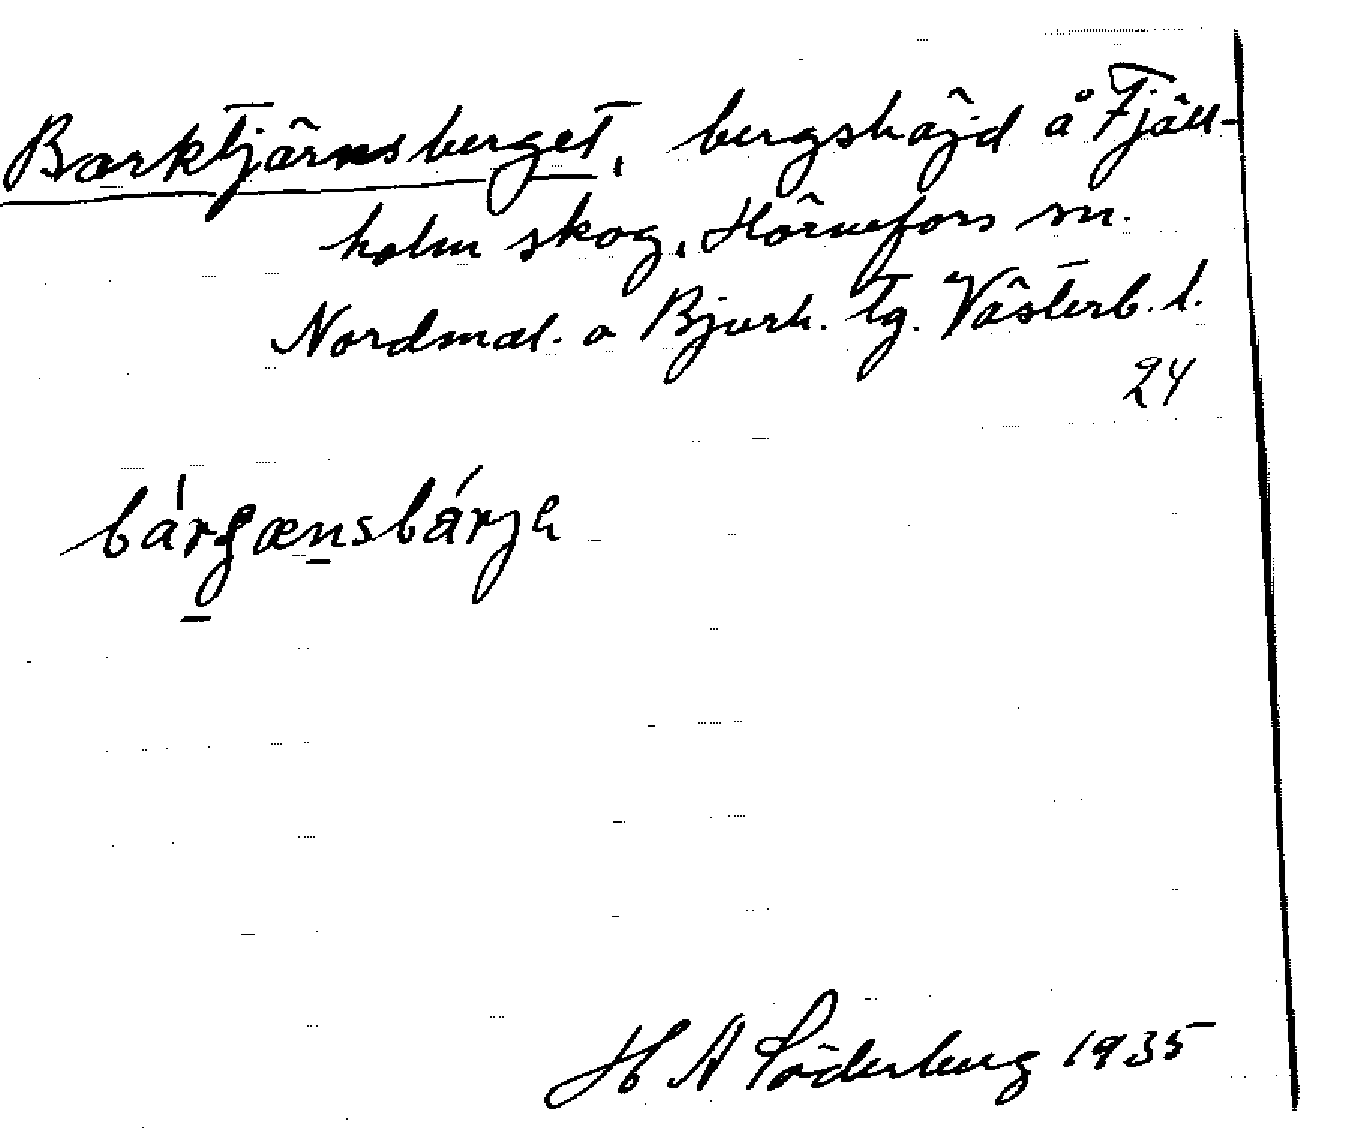 Barktjärnsberget, bergshöjd å Fjäll-
holm skog, Hörnefors sn.
Nordmal. o Bjurh. tg. Västerb. l.
24
H A Söderberg 1935